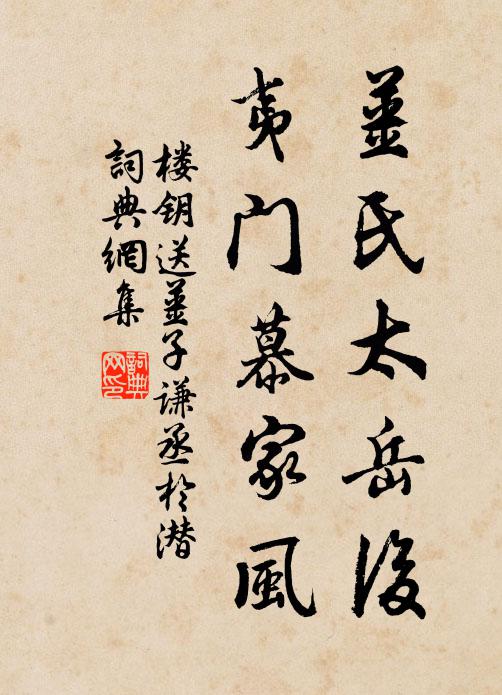 薑氏太岳後
夷門慕家風
楼钥送薑子谦丞於潜
詞典網集
詞典网印